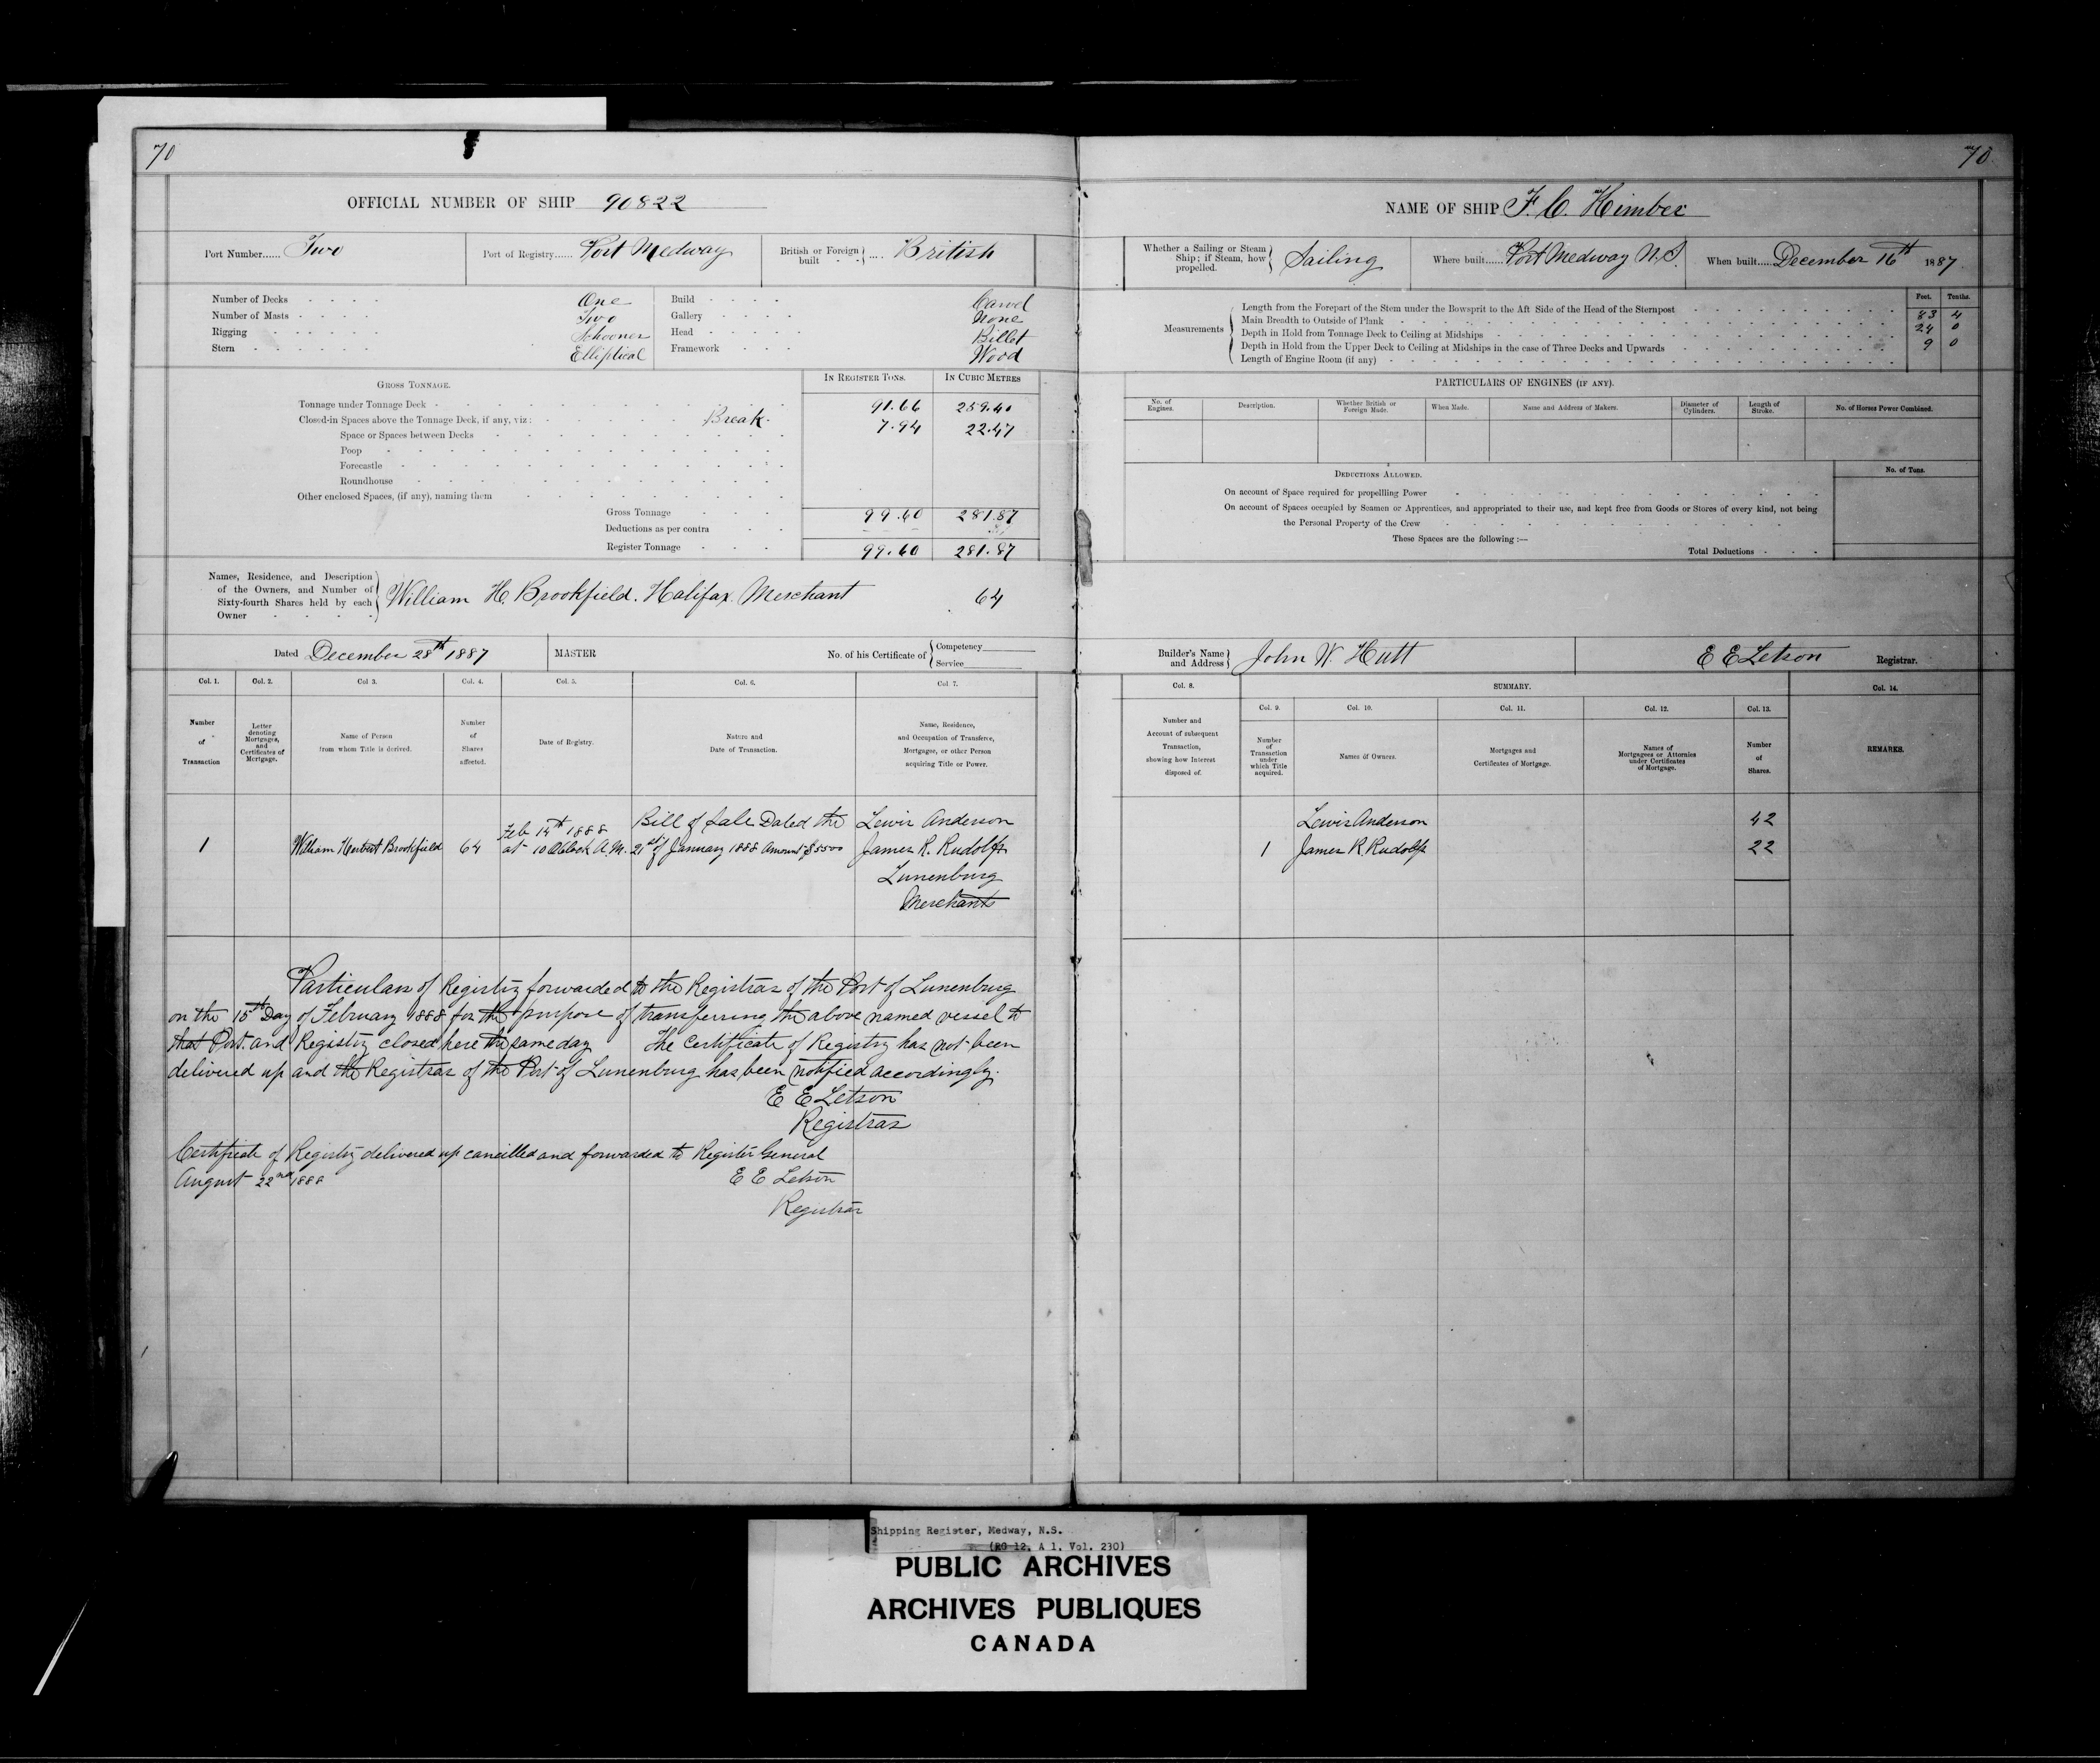 70
OFFICIAL NUMBER OF SHIP 90822
Port Number...... Two
Port of Registry...... Port Medway
British or Foreign built .... British
Number of Decks One
Number of Masts Two
Rigging Schooner
Stern Elliptical
Build Carvel
Gallery None
Head Billet
Framework Wood
GROSS TONNAGE.
IN REGISTER TONS.
IN CUBIC METRES
Tonnage under Tonnage Deck 91.66 259.40
Closed-in Spaces above the Tonnage Deck, if any, viz: Break. 7.94 22.47
Space or Spaces between Decks
Poop
Forecastle
Roundhouse
Other enclosed Spaces, (if any), naming them
Gross Tonnage 99.60 281.87
Deductions as per contra
Register Tonnage 99.60 281.87
Names, Residence, and Description
of the Owners, and Number of
Sixty-fourth Shares held by each
Owner
William H. Brookfield. Halifax. Merchant 64
Dated December 28th 1887
MASTER
No. of his Certificate of
Competency
Service
Col. 1.
Number
of
Transaction
Col. 2.
Letter
denoting
Mortgages,
and
Certificates of
Mortgage.
Col. 3.
Name of Person
from whom Title is derived.
Col. 4.
Number
of
Shares
affected.
Col. 5.
Date of Registry.
Col. 6.
Nature and
Date of Transaction.
Col. 7.
Name, Residence,
and Occupation of Transferee,
Mortgagee, or other Person
acquiring Title or Power.
1
William Herbert Brookfield
64
Feb 14th 1888
at 10 Oclock A.M.
Bill of Sale Dated the
21st of January 1888 Amount $5500
Lewis Anderson
James R. Rudolf
Lunenburg
Merchants
Particulars of Registry forwarded to the Registrar of the Port of Lunenburg
on the 15th Day of February 1888 for the purpose of transferring the above named vessel to
that Port. and Registry closed here the same day The Certificate of Registry has not been
delivered up and the Registrar of the Port of Lunenburg has been notified accordingly.
E E Letson
Registrar
Certificate of Registry delivered up cancelled and forwarded to Register General
August 22nd 1888
E E Letson
Registrar
70
NAME OF SHIP F. C. Kimber
Whether a Sailing or Steam
Ship; if Steam, how
propelled.
Sailing
Where built...... Port Medway N.S.
When built..... December 16th 1887
Measurements
Feet. Tenths.
Length from the Forepart of the Stem under the Bowsprit to the Aft Side of the Head of the Sternpost 83 4
Main Breadth to Outside of Plank 24 0
Depth in Hold from Tonnage Deck to Ceiling at Midships 9 0
Depth in Hold from the Upper Deck to Ceiling at Midships in the case of Three Decks and Upwards
Length of Engine Room (if any)
PARTICULARS OF ENGINES (IF ANY).
No. of
Engines.
Description.
Whether British or
Foreign Made.
When Made.
Name and Address of Makers.
Diameter of
Cylinders.
Length of
Stroke.
No. of Horses Power Combined.
DEDUCTIONS ALLOWED.
No. of Tons.
On account of Space required for propellling Power
On account of Spaces occupied by Seamen or Apprentices, and appropriated to their use, and kept free from Goods or Stores of every kind, not being
the Personal Property of the Crew
These Spaces are the following :—
Total Deductions
Builder's Name
and Address
John W. Hutt
E E Letson Registrar.
Col. 8.
Number and
Account of subsequent
Transaction,
showing how Interest
disposed of.
SUMMARY.
Col. 9.
Number
of
Transaction
under
which Title
acquired.
Col. 10.
Names of Owners.
Col. 11.
Mortgages and
Certificates of Mortgage.
Col. 12.
Names of
Mortgagees or Attornies
under Certificates
of Mortgage.
Col. 13.
Number
of
Shares.
Col. 14.
REMARKS.
Lewis Anderson 42
1 James R. Rudolf 22
Shipping Register, Medway, N.S.
(RG 12, A 1, Vol. 230)
PUBLIC ARCHIVES
ARCHIVES PUBLIQUES
CANADA